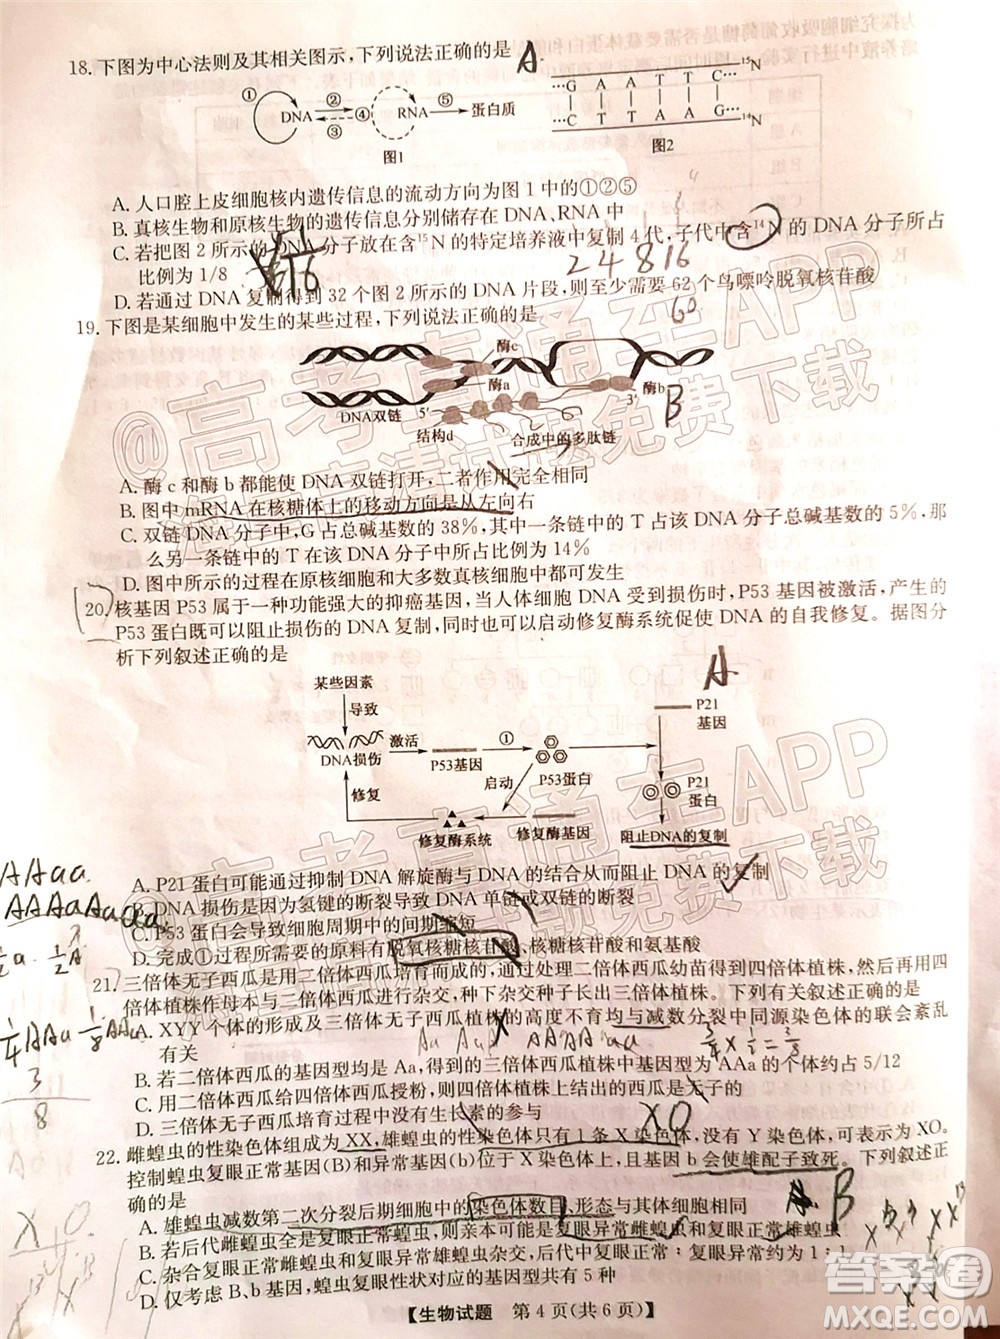 18. 下图为中心法则及其相关图示，下列说法正确的是 A
① DNA ② ③ ④ RNA ⑤ 蛋白质
图1
…G A A T T C… ¹⁵N
…C T T A A G… ¹⁴N
图2
A. 人口腔上皮细胞核内遗传信息的流动方向为图 1 中的①②⑤
B. 真核生物和原核生物的遗传信息分别储存在 DNA、RNA 中
C. 若把图 2 所示的 DNA 分子放在含¹⁵N 的特定培养液中复制 4 代，子代中含¹⁴N 的 DNA 分子所占
比例为 1/8
2 4 8 16
D. 若通过 DNA 复制得到 32 个图 2 所示的 DNA 片段，则至少需要 62 个鸟嘌呤脱氧核苷酸
60
19. 下图是某细胞中发生的某些过程，下列说法正确的是
酶c
酶a
酶b
B
DNA双链 5′ 3′
结构d 合成中的多肽链
A. 酶 c 和酶 b 都能使 DNA 双链打开，二者作用完全相同
B. 图中 mRNA 在核糖体上的移动方向是从左向右
C. 双链 DNA 分子中，G 占总碱基数的 38%，其中一条链中的 T 占该 DNA 分子总碱基数的 5%，那
么另一条链中的 T 在该 DNA 分子中所占比例为 14%
D. 图中所示的过程在原核细胞和大多数真核细胞中都可发生
20. 核基因 P53 属于一种功能强大的抑癌基因，当人体细胞 DNA 受到损伤时，P53 基因被激活，产生的
P53 蛋白既可以阻止损伤的 DNA 复制，同时也可以启动修复酶系统促使 DNA 的自我修复。据图分
析下列叙述正确的是
A
某些因素
导致
DNA损伤
激活
P53基因
①
P53蛋白
P21
基因
启动
修复
P21
蛋白
修复酶系统 修复酶基因 阻止DNA的复制
A. P21 蛋白可能通过抑制 DNA 解旋酶与 DNA 的结合从而阻止 DNA 的复制
B. DNA 损伤是因为氢键的断裂导致 DNA 单链或双链的断裂
C. P53 蛋白会导致细胞周期中的间期缩短
D. 完成①过程所需要的原料有脱氧核糖核苷酸、核糖核苷酸和氨基酸
21. 三倍体无子西瓜是用二倍体西瓜培育而成的，通过处理二倍体西瓜幼苗得到四倍体植株，然后再用四
倍体植株作母本与二倍体西瓜进行杂交，种下杂交种子长出三倍体。下列有关叙述正确的是
A. XYY 个体的形成及三倍体无子西瓜植株的高度不育均与减数分裂中同源染色体的联会紊乱
有关
B. 若二倍体西瓜的基因型均为 Aa，则得到的三倍体植株中基因型为 AAa 的个体约占 5/12
C. 用二倍体西瓜给四倍体西瓜授粉，则四倍体植株上结出的西瓜是无子的
D. 三倍体无子西瓜培育过程中没有生长素的参与
XO
22. 雌蝗虫的性染色体组成为 XX，雄蝗虫的性染色体只有 1 条 X 染色体，没有 Y 染色体，可记为 XO。
控制蝗虫复眼正常基因(B)和异常基因(b)位于 X 染色体上，且基因 b 会使雄配子致死。下列叙述正
确的是
B
A. 雄蝗虫减数第二次分裂后期细胞中的染色体数目、形态与其体细胞相同
B. 后代雌蝗虫全是复眼正常，雄蝗虫可能是复眼异常雄蝗虫和复眼正常雄蝗虫
C. 杂合复眼正常雌蝗虫和复眼异常雄蝗虫杂交，后代中复眼正常：复眼异常约为 1：1
D. 仅考虑 B、b，蝗虫复眼性状对应的基因型共有 5 种
【生物试题 第 4 页(共 6 页)】
@高考直通车APP
海量高清试题免费下载
高考直通车APP
答案圈
MXQE.COM